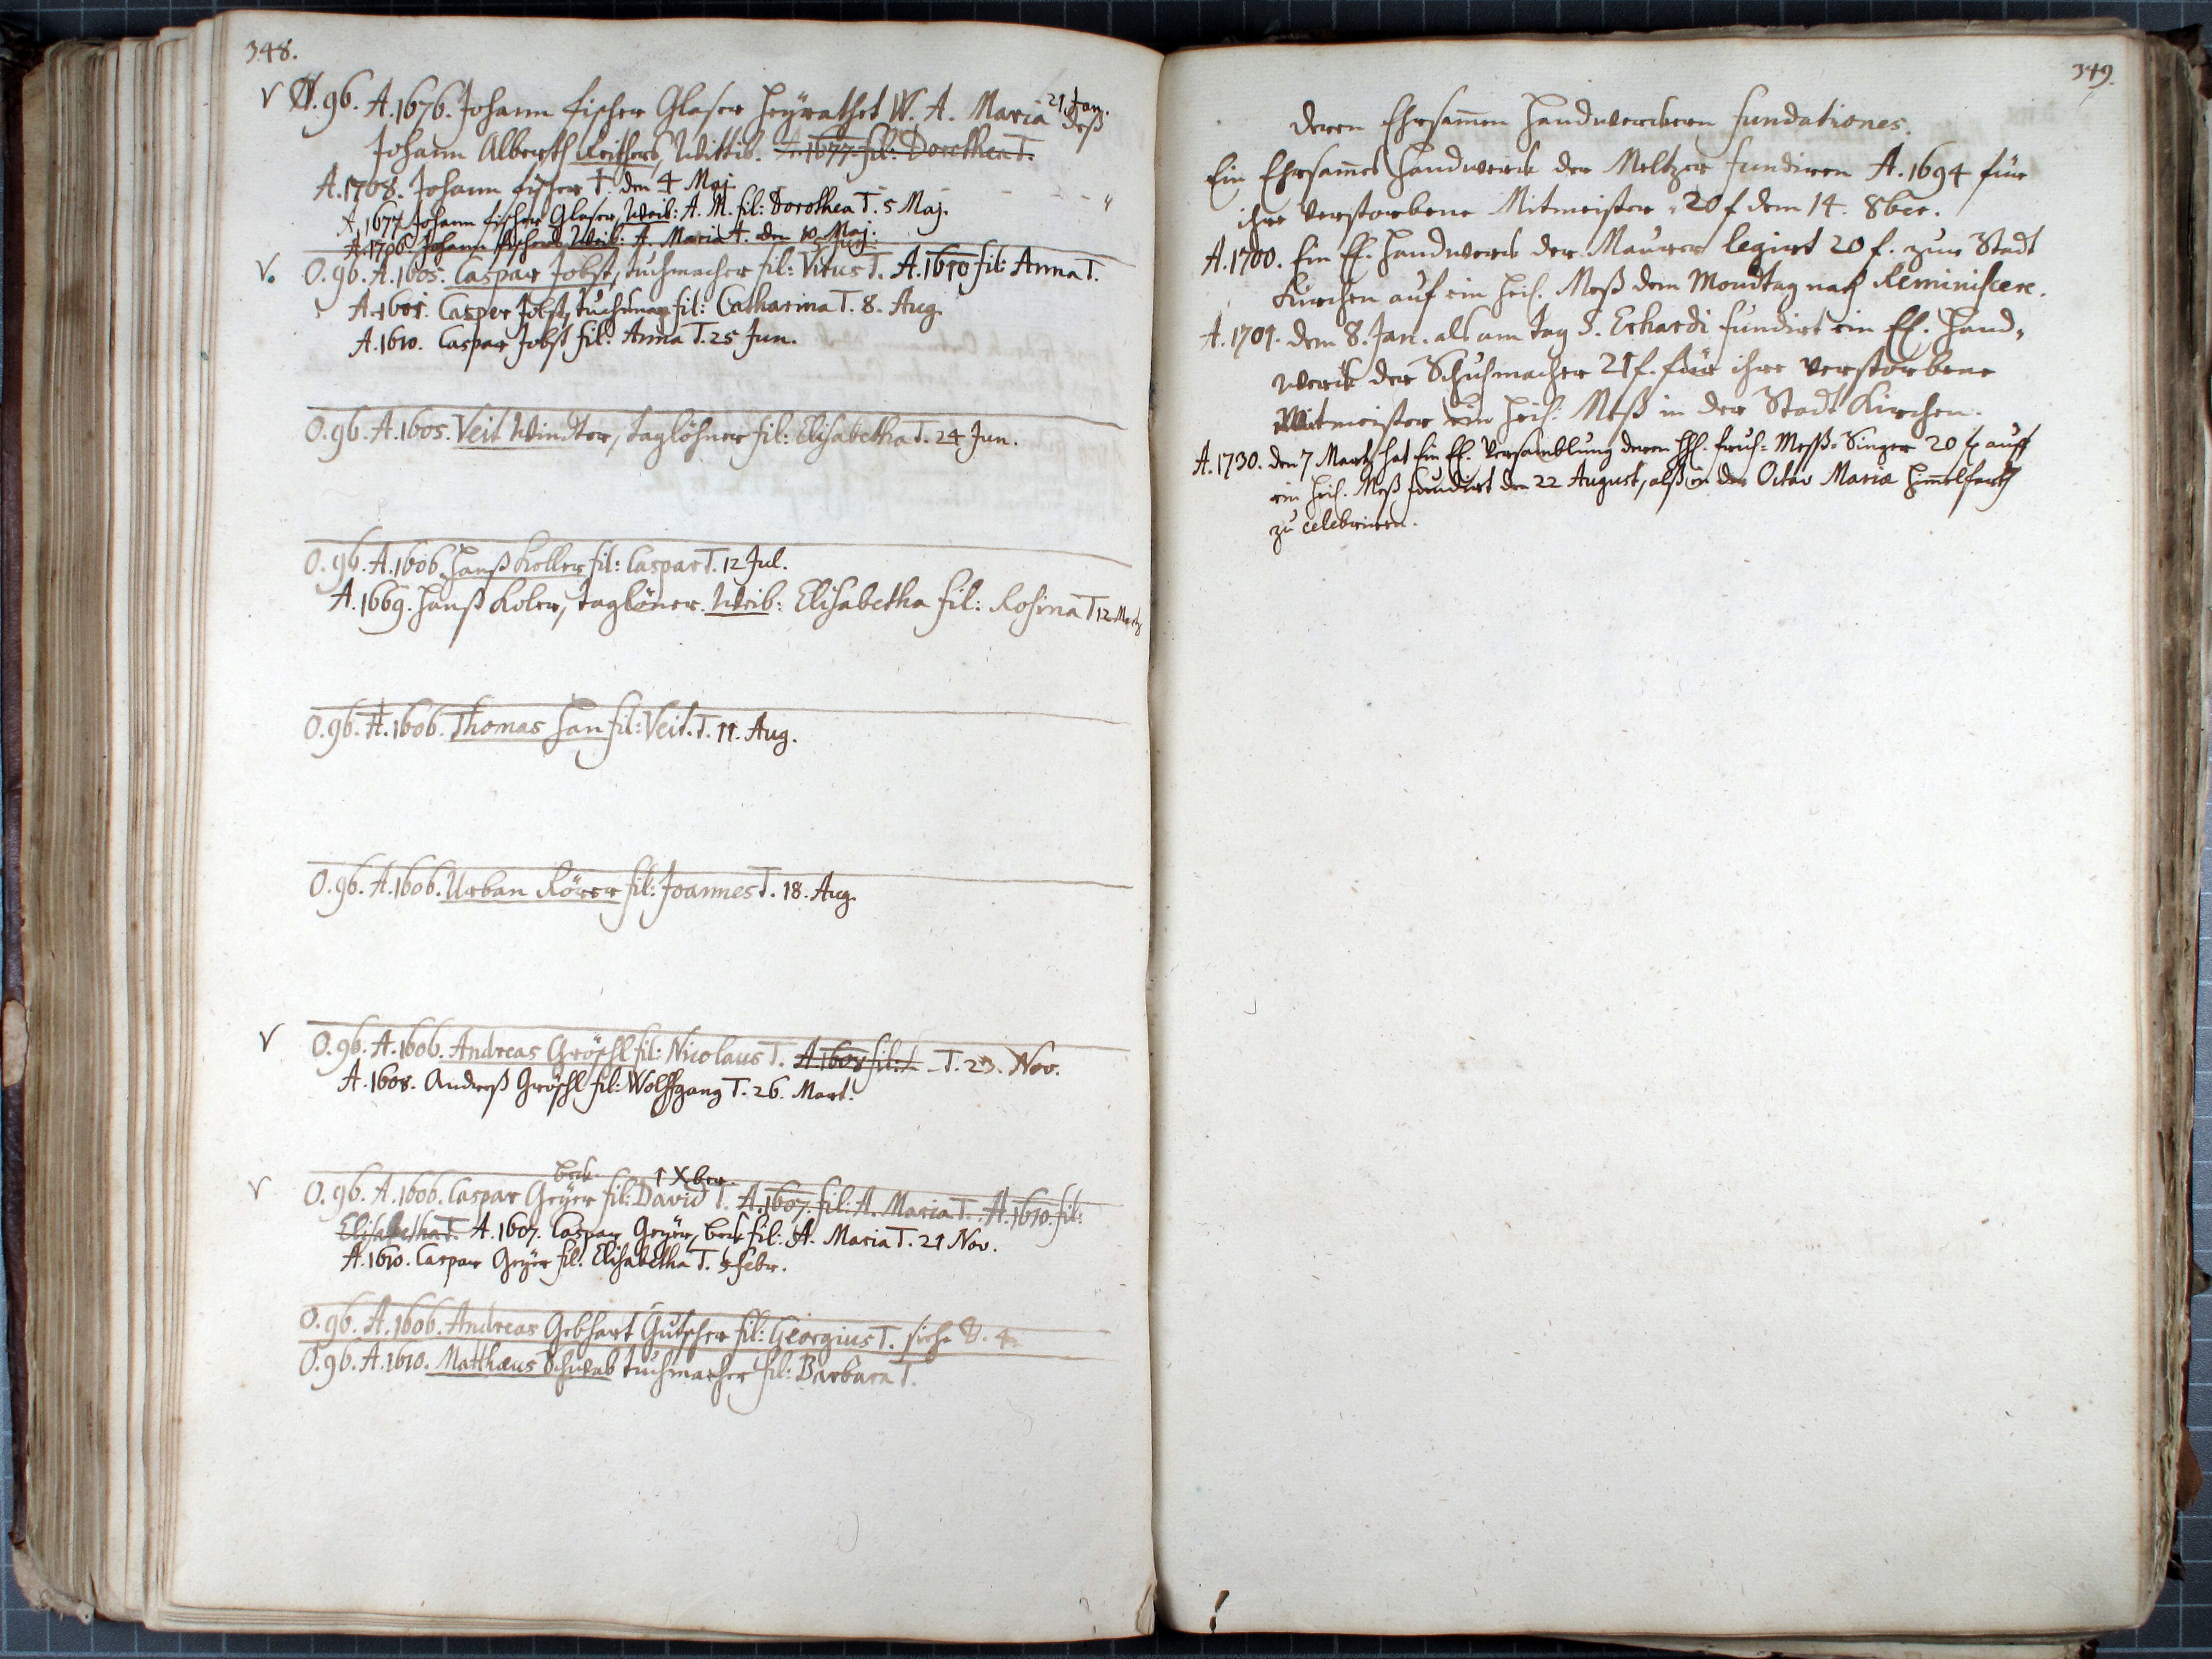 348.
V O. 96. A. 1676. Johann Fischer Glaser heÿrathet W. A. Maria 21. Jan. deß
Johann Alberth Reithers, Wittib. A. 1677. fil: Dorothea T.
A. 1708. Johann Fischer †. den 4 Maj.
A. 1677 Johann Fischer Glaser, Weib: A. M. fil: Dorothea T. 5 Maj.
A. 1706. Johann Fischers Weib: A. Maria †. den 10 Maj.
V. O. 96. A. 1605. Caspar Jobst, tuchmacher fil: Vitus T. A. 1610 fil: Anna T.
A. 1601. Casper Jobst, tuchmap fil: Catharina T. 8. Aug.
A. 1610. Caspar Jobst fil: Anna T. 25 Jun.
O. 96. A. 1605. Veit Windter, taglöhner fil: Elisabetha T. 24 Jun.
O. 96. A. 1606. Hanß Koller fil: Caspar T. 12 Jul.
A. 1669. Hanß Koler, taglöner. Weib: Elisabetha fil: Rosina T 12 Martz
O. 96. A. 1606. Thomas Han fil: Veit. T. 11. Aug.
O. 96. A. 1606. Urban Rörer fil: Joannes T. 18. Aug.
V O. 96. A. 1606. Andreas Gröschl fil: Nicolaus T. A. 1608 fil: T. 23. Nov.
A. 1608. Andreß Gröschl fil: Wolffgang T. 26. Mart.
beck 1 Xber.
V O. 96. A. 1606. Caspar Geÿer fil: David T. A. 1607. fil: A. Maria T. A. 1610. fil:
Elisabetha T. A. 1607. Caspar Geÿer, beck fil: A. Maria T. 21 Nov.
A. 1610. Caspar Geÿer fil: Elisabetha T. 5 Febr.
O. 96. A. 1606. Andreas Gebhart Gutscher fil: Georgius T. siehe D. 4
O. 96. A. 1610. Matthæus Schwab tuchmacher fil: Barbara T.
349.
Deren Ehrsamen Handwerckern fundationes.
Ein Ehrsames Handwerck der Meltzer fundiren A. 1694 für
ihre verstorbene Mitmeister 20 f dem 14. 8ber.
A. 1700. Ein E. Handwerck der Maurer legirt 20 f. zur Stadt
Kirchen auf ein heil. Meß dem Mondtag nach Reminiscere.
A. 1701. dem 8. Jan. als am tag S. Erhardi fundirt ein E. Hand,
werck der Schuhmacher 21 f. für ihre verstorbene
Mitmeister ein heil: Meß in der Stadt Kirchen.
A. 1730. den 7 Martz hat ein E. Versamblung deren HH. fruh= Mess= Singer 20 f auff
ein heil. Meß fundirt den 22 August, alß in der Octav Mariæ Himelfarth
zu celebriren.